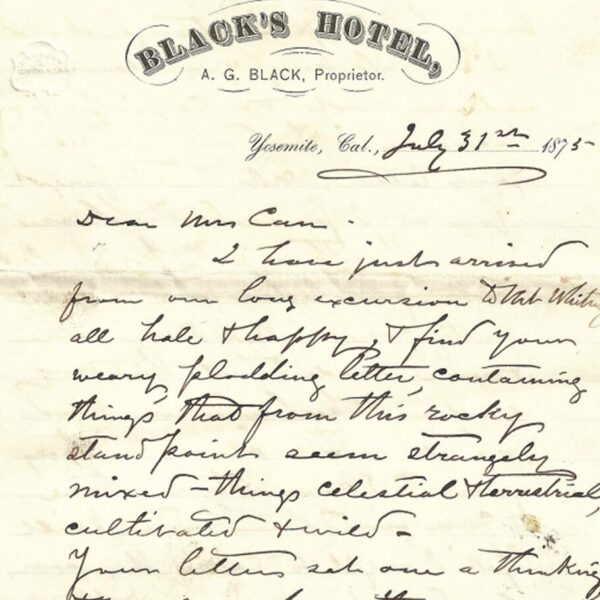 BLACK'S HOTEL,
A. G. BLACK, Proprietor.
Yosemite, Cal., July 31st 1875
Dear Mrs Carr.
I have just arrived
from our long excursion to Mt Whitney
all hale & happy, & find your
weary plodding letter, containing
things that from this rocky
standpoint seem strangely
mixed - things celestial & terrestrial,
cultivated & wild -
Your letters set one a thinking